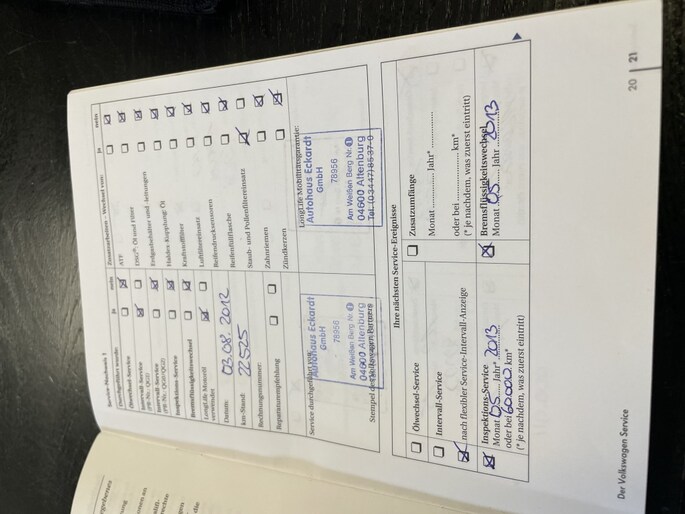 Service-Nachweis 1
Durchgeführt wurde: ja nein
Ölwechsel-Service
Intervall-Service
(PR-Nr. QG1)
Intervall-Service
(PR-Nr. QG0/QG2)
Inspektions-Service
Bremsflüssigkeitswechsel
LongLife Motoröl
verwendet
Datum: 03.08.2012
km-Stand: 22525
Rechnungsnummer:
Reparaturempfehlung
Service durchgeführt von:
Autohaus Eckardt
GmbH
78956
Am Weißen Berg Nr. 1
04600 Altenburg
Stempel des Volkswagen Partners
Zusatzarbeiten – Wechsel von: ja nein
ATF
DSG®-Öl und Filter
Erdgasbehälter und -leitungen
Haldex-Kupplung: Öl
Kraftstofffilter
Luftfiltereinsatz
Reifendrucksensoren
Reifenfüllflasche
Staub- und Pollenfiltereinsatz
Zahnriemen
Zündkerzen
LongLife Mobilitätsgarantie:
Autohaus Eckardt
GmbH
78956
Am Weißen Berg Nr. 1
04600 Altenburg
Tel. (03447)8537-0
Ihre nächsten Service-Ereignisse
Ölwechsel-Service
Intervall-Service
nach flexibler Service-Intervall-Anzeige
Inspektions-Service
Monat 05 Jahr* 2013
oder bei 60.000 km*
(* je nachdem, was zuerst eintritt)
Zusatzumfänge
Monat ............. Jahr* .............
oder bei ................ km*
(* je nachdem, was zuerst eintritt)
Bremsflüssigkeitswechsel
Monat 05 Jahr 2013
Der Volkswagen Service
20 | 21